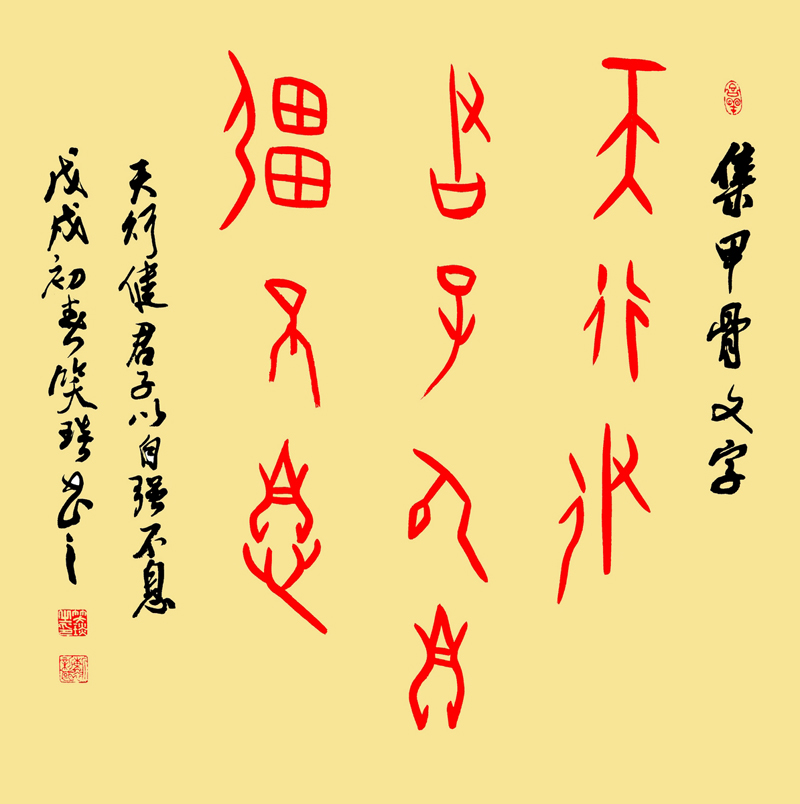 集甲骨文字
天行健
君子以自
彊不息
天行健君子以自强不息
戊戌初春笑琰书之